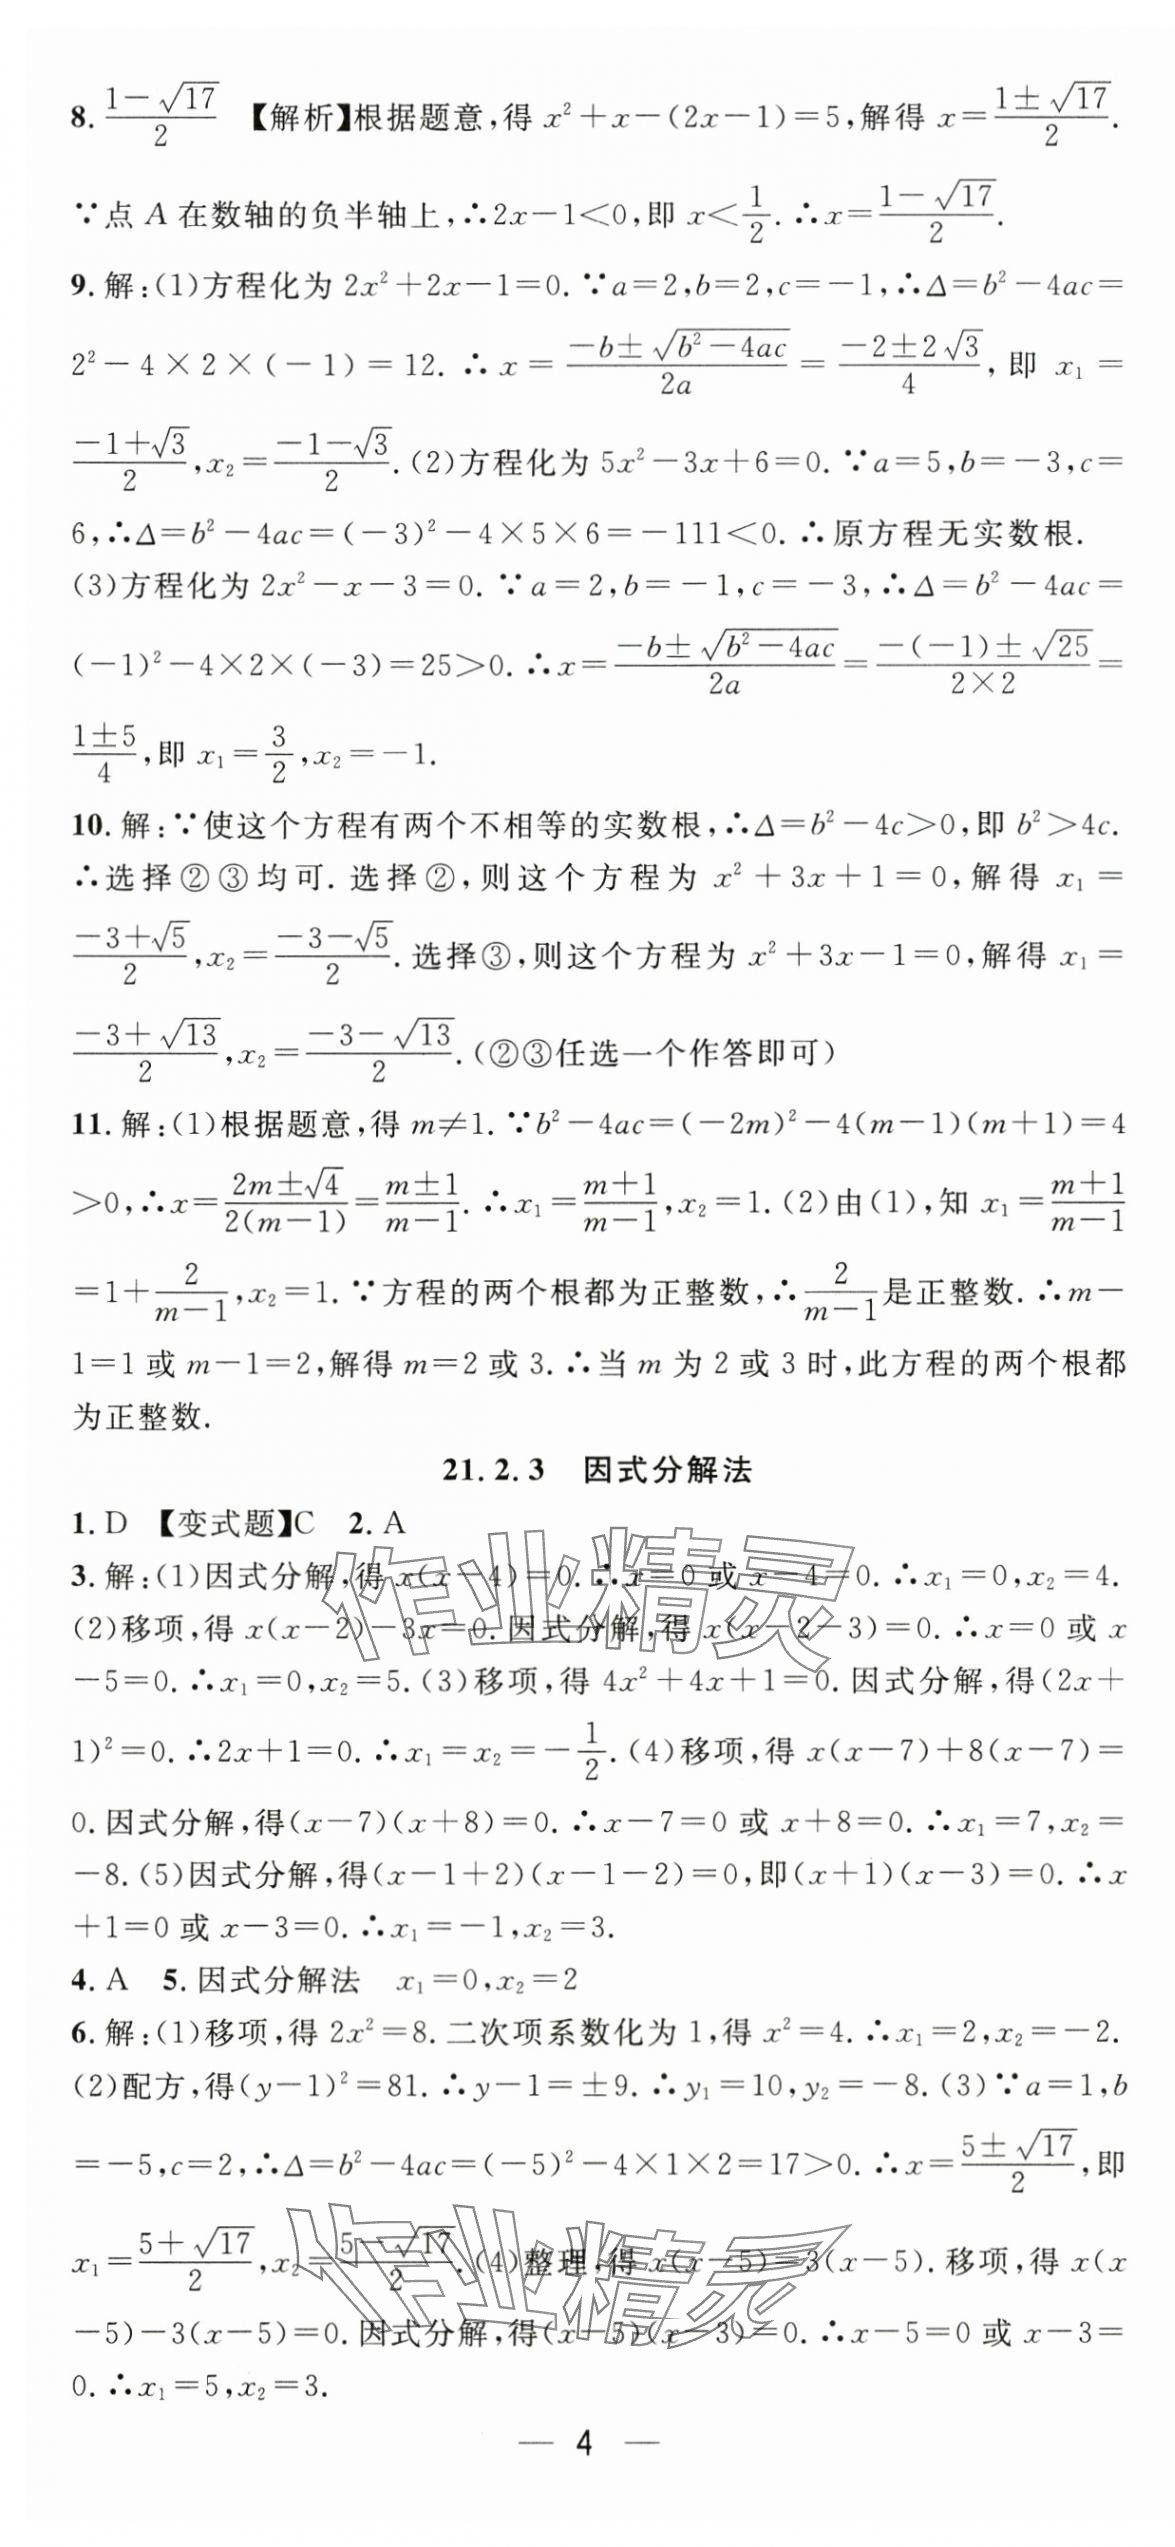 8. \frac{1-\sqrt{17}}{2} 【解析】根据题意,得 x²+x-(2x-1)=5,解得 x=\frac{1±\sqrt{17}}{2}.
∵点 A 在数轴的负半轴上,∴2x-1<0,即 x<\frac{1}{2}.∴x=\frac{1-\sqrt{17}}{2}.
9.解:(1)方程化为 2x²+2x-1=0.∵a=2,b=2,c=-1,∴Δ=b²-4ac=
2²-4×2×(-1)=12.∴x=\frac{-b±\sqrt{b²-4ac}}{2a}=\frac{-2±2\sqrt{3}}{4},即 x₁=
\frac{-1+\sqrt{3}}{2},x₂=\frac{-1-\sqrt{3}}{2}.(2)方程化为 5x²-3x+6=0.∵a=5,b=-3,c=
6,∴Δ=b²-4ac=(-3)²-4×5×6=-111<0.∴原方程无实数根.
(3)方程化为 2x²-x-3=0.∵a=2,b=-1,c=-3,∴Δ=b²-4ac=
(-1)²-4×2×(-3)=25>0.∴x=\frac{-b±\sqrt{b²-4ac}}{2a}=\frac{-(-1)±\sqrt{25}}{2×2}=
\frac{1±5}{4},即 x₁=\frac{3}{2},x₂=-1.
10.解:∵使这个方程有两个不相等的实数根,∴Δ=b²-4c>0,即 b²>4c.
∴选择②③均可.选择②,则这个方程为 x²+3x+1=0,解得 x₁=
\frac{-3+\sqrt{5}}{2},x₂=\frac{-3-\sqrt{5}}{2}.选择③,则这个方程为 x²+3x-1=0,解得 x₁=
\frac{-3+\sqrt{13}}{2},x₂=\frac{-3-\sqrt{13}}{2}.(②③任选一个作答即可)
11.解:(1)根据题意,得 m≠1.∵b²-4ac=(-2m)²-4(m-1)(m+1)=4
>0,∴x=\frac{2m±\sqrt{4}}{2(m-1)}=\frac{m±1}{m-1}.∴x₁=\frac{m+1}{m-1},x₂=1.(2)由(1),知 x₁=\frac{m+1}{m-1}
=1+\frac{2}{m-1},x₂=1.∵方程的两个根都为正整数,∴\frac{2}{m-1}是正整数.∴m-
1=1 或 m-1=2,解得 m=2 或 3.∴当 m 为 2 或 3 时,此方程的两个根都
为正整数.
21.2.3 因式分解法
1. D 【变式题】C 2. A
3.解:(1)因式分解,得 x(x-4)=0.∴x=0 或 x-4=0.∴x₁=0,x₂=4.
(2)移项,得 x(x-2)-3x=0.因式分解,得 x(x-2-3)=0.∴x=0 或 x
-5=0.∴x₁=0,x₂=5.(3)移项,得 4x²+4x+1=0.因式分解,得(2x+
1)²=0.∴2x+1=0.∴x₁=x₂=-\frac{1}{2}.(4)移项,得 x(x-7)+8(x-7)=
0.因式分解,得(x-7)(x+8)=0.∴x-7=0 或 x+8=0.∴x₁=7,x₂=
-8.(5)因式分解,得(x-1+2)(x-1-2)=0,即(x+1)(x-3)=0.∴x
+1=0 或 x-3=0.∴x₁=-1,x₂=3.
4. A 5.因式分解法 x₁=0,x₂=2
6.解:(1)移项,得 2x²=8.二次项系数化为 1,得 x²=4.∴x₁=2,x₂=-2.
(2)配方,得(y-1)²=81.∴y-1=±9.∴y₁=10,y₂=-8.(3)∵a=1,b
=-5,c=2,∴Δ=b²-4ac=(-5)²-4×1×2=17>0.∴x=\frac{5±\sqrt{17}}{2},即
x₁=\frac{5+\sqrt{17}}{2},x₂=\frac{5-\sqrt{17}}{2}.(4)整理,得 x(x-5)=3(x-5).移项,得 x(x
-5)-3(x-5)=0.因式分解,得(x-5)(x-3)=0.∴x-5=0 或 x-3=
0.∴x₁=5,x₂=3.
— 4 —
作业精灵
作业精灵